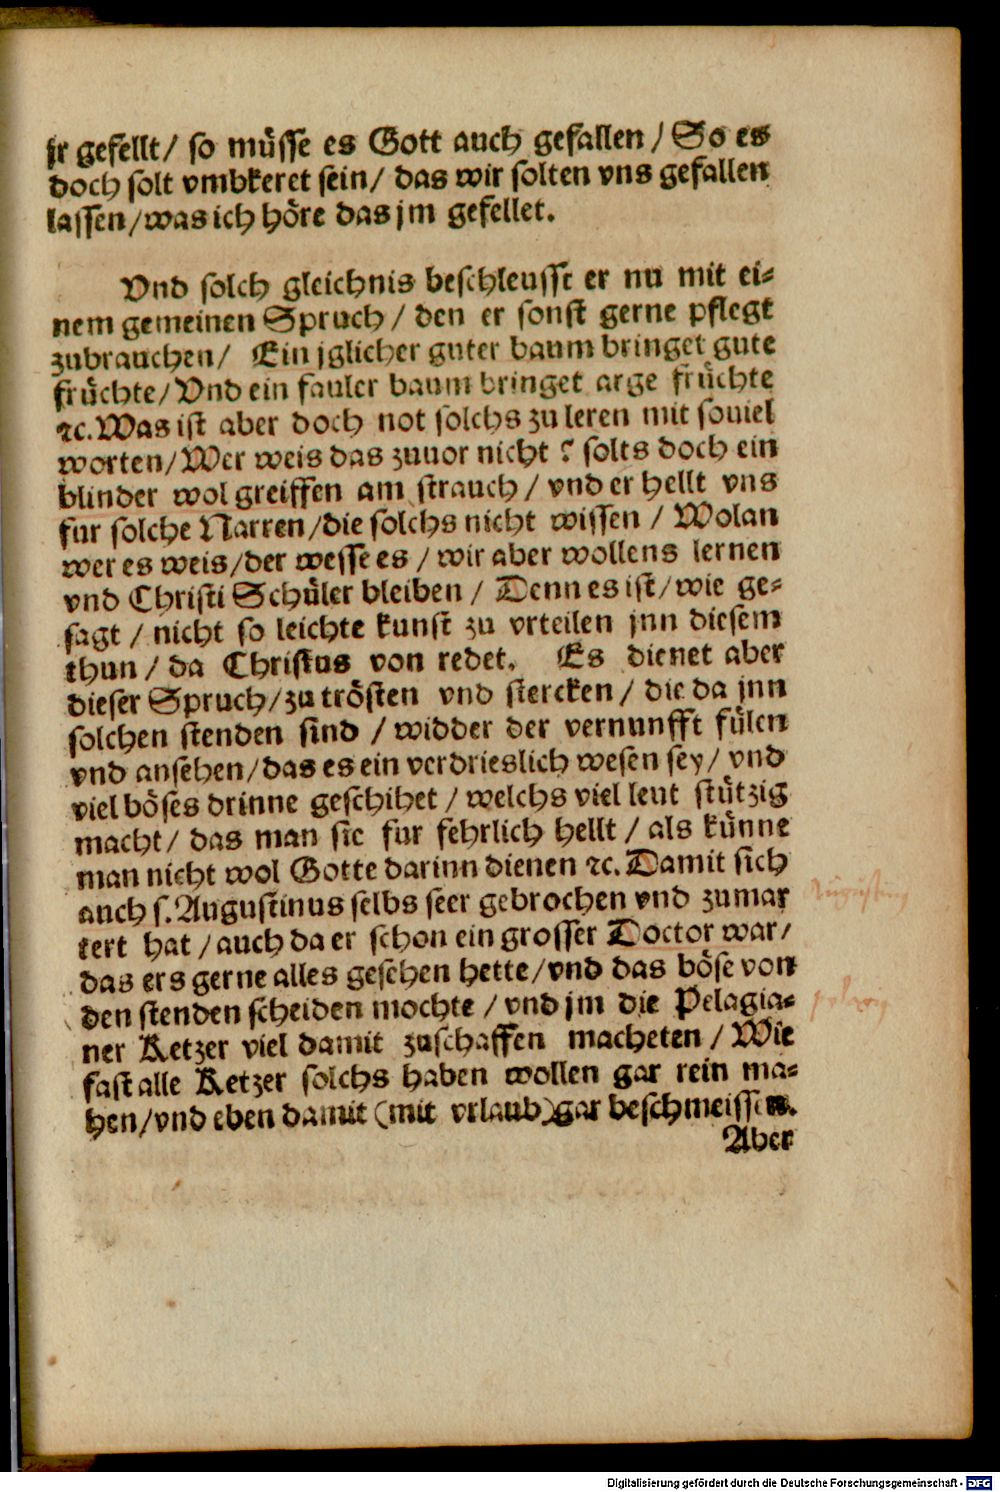 jr gefellt/ so müsse es Gott auch gefallen/ So es
doch solt vmbkeret sein/ das wir solten vns gefallen
lassen/was ich höre das jm gefellet.
Vnd solch gleichnis beschleusst er nu mit ei-
nem gemeinen Spruch/ den er sonst gerne pflegt
zubrauchen/ Ein jglicher guter baum bringet gute
früchte/ Vnd ein fauler baum bringet arge früchte
⁊c. Was ist aber doch not solchs zu leren mit souiel
worten/ Wer weis das zuuor nicht? solts doch ein
blinder wol greiffen am strauch/ vnd er hellt vns
fur solche Narren/die solchs nicht wissen/ Wolan
wer es weis/der wesse es/ wir aber wollens lernen
vnd Christi Schüler bleiben/ Denn es ist/wie ge-
sagt/ nicht so leichte kunst zu vrteilen jnn diesem
thun/ da Christus von redet. Es dienet aber
dieser Spruch/zu trösten vnd stercken/ die da jnn
solchen stenden sind/ widder der vernunfft fülen
vnd ansehen/das es ein verdrieslich wesen sey/ vnd
viel böses drinne geschihet/ welchs viel leut stützig
macht/ das man sie fur fehrlich hellt/ als künne
man nicht wol Gotte darinn dienen ⁊c. Damit sich
auch s. Augustinus selbs seer gebrochen vnd zumar
tert hat/auch da er schon ein grosser Doctor war/
das ers gerne alles gesehen hette/vnd das böse von
den stenden scheiden mochte/ vnd jm die Pelagia-
ner Ketzer viel damit zuschaffen macheten/ Wie
fast alle Ketzer solchs haben wollen gar rein ma-
hen/vnd eben damit (mit vrlaub) gar beschmeissen.
Aber
Augustin
Digitalisierung gefördert durch die Deutsche Forschungsgemeinschaft - DFG